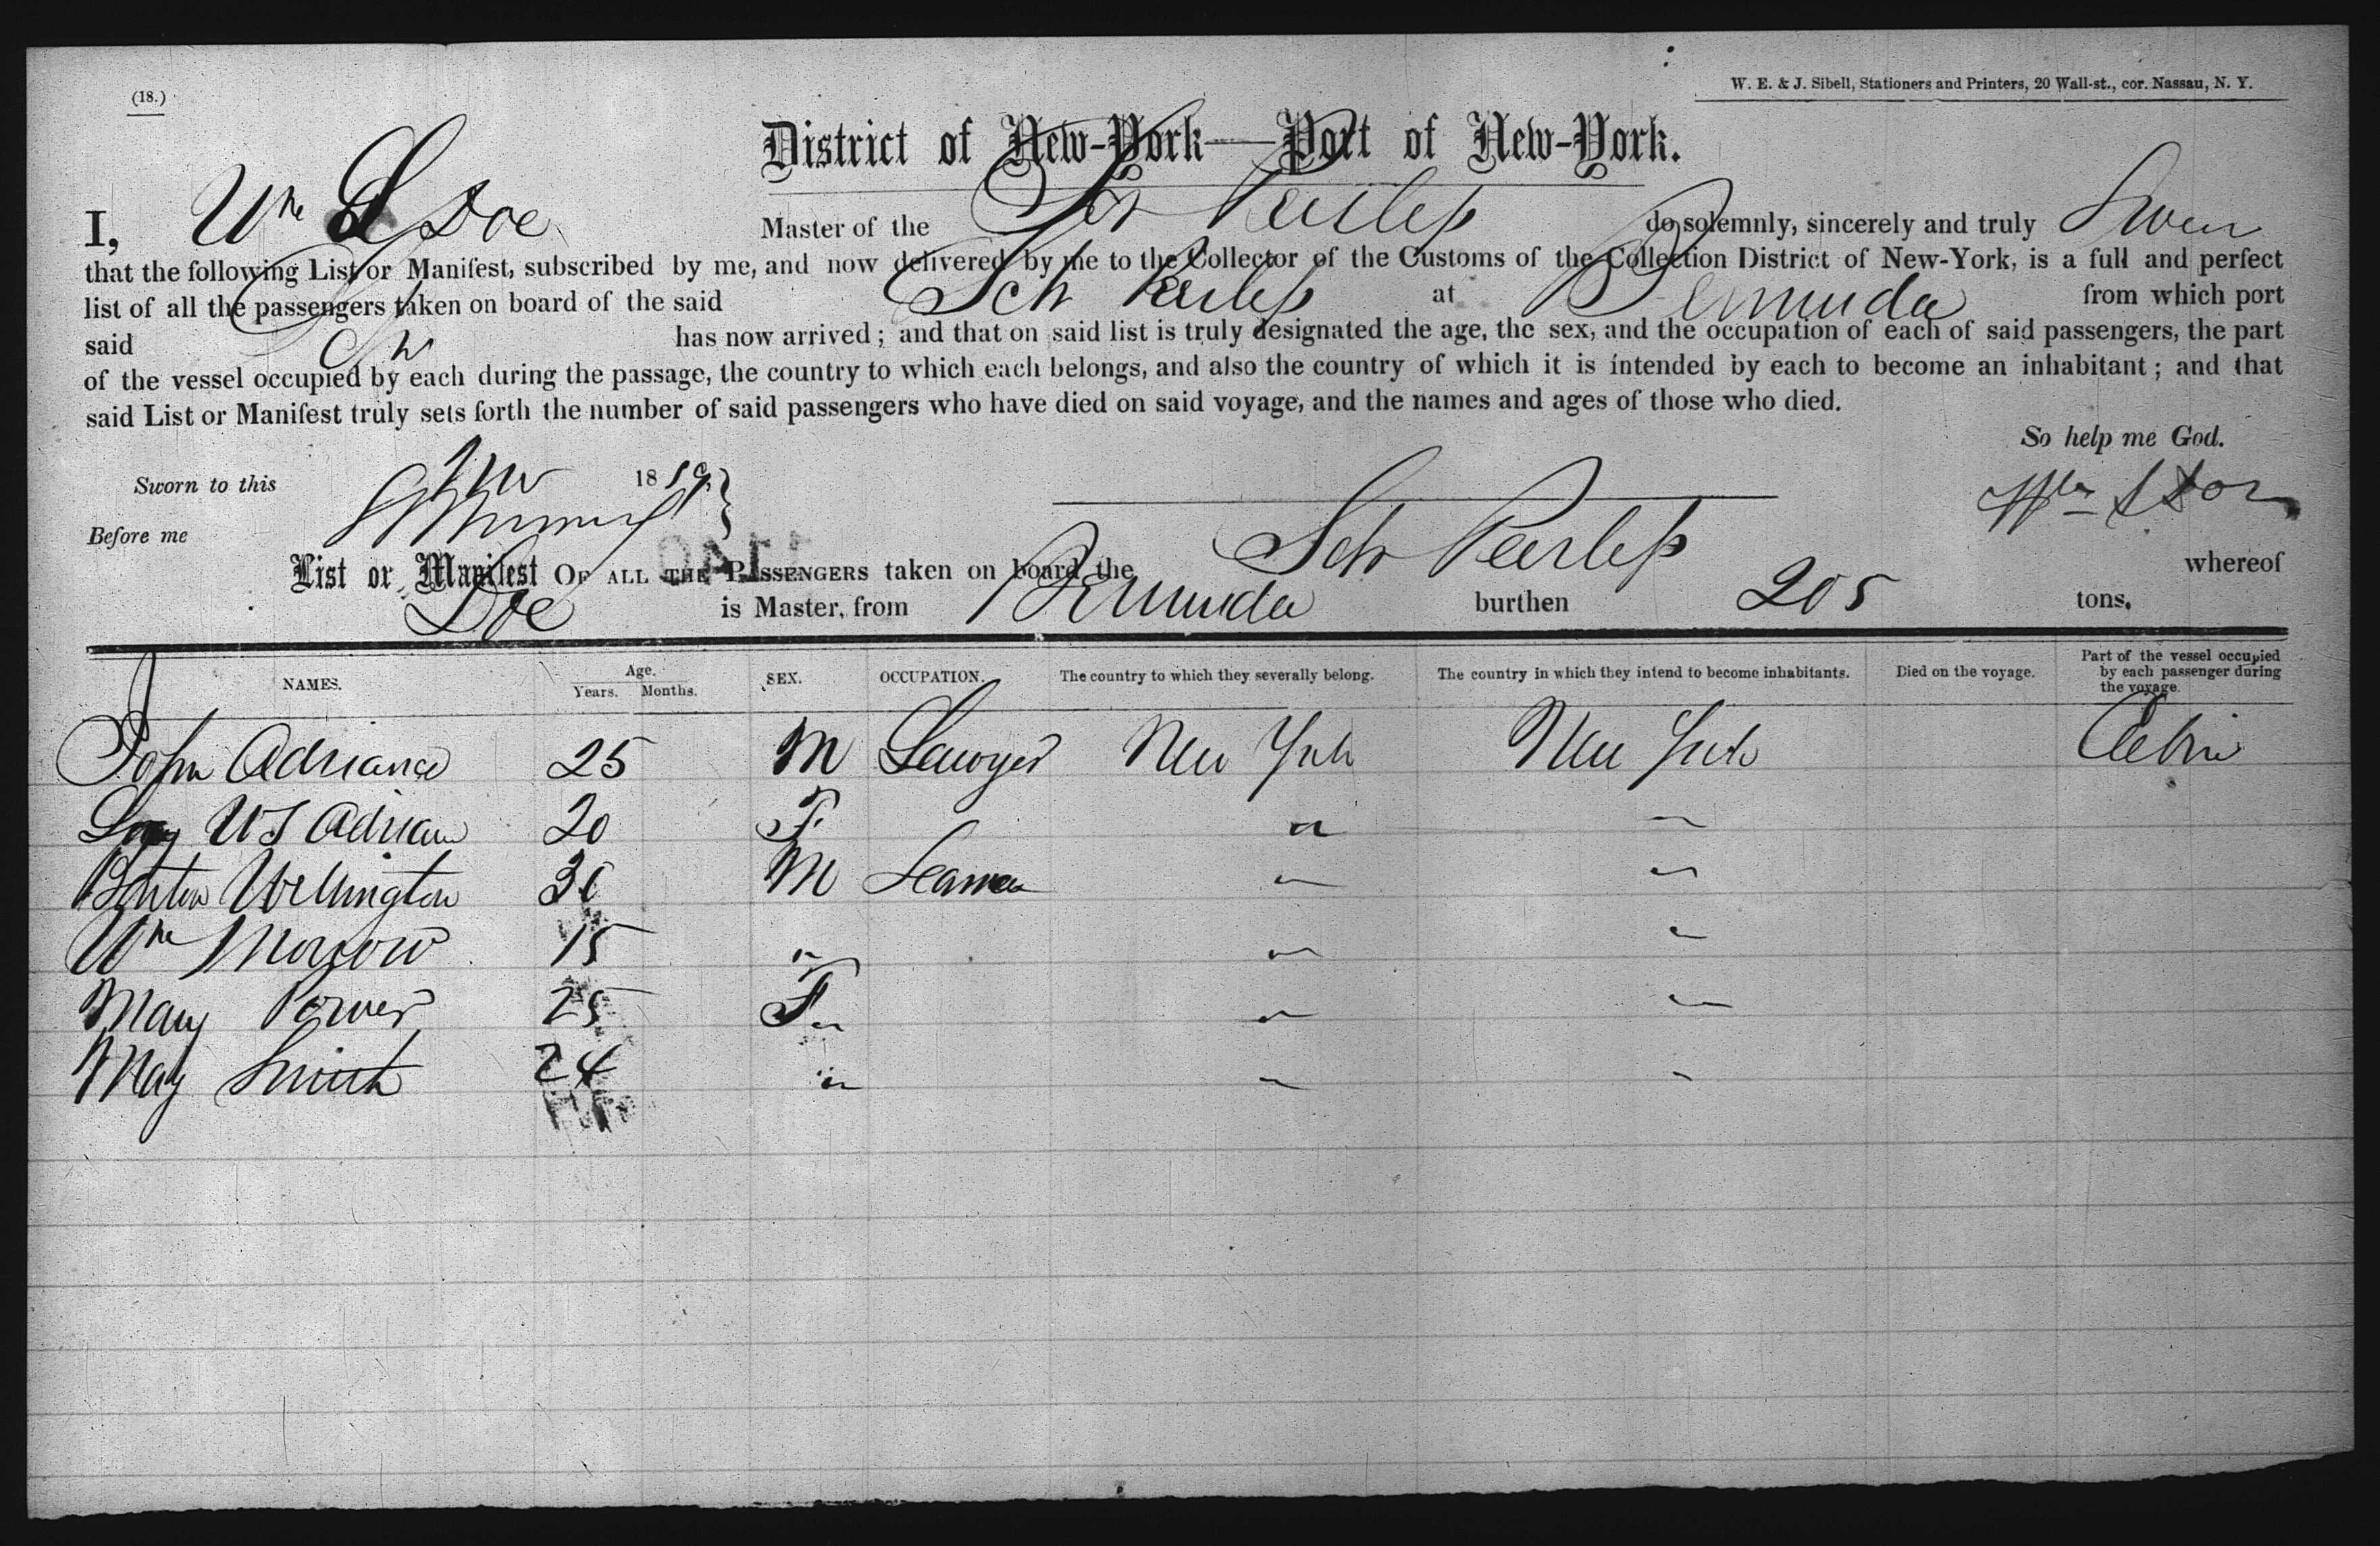 (18.)
W. E. & J. Sibell, Stationers and Printers, 20 Wall-st., cor. Nassau, N. Y.
District of New-York—Port of New-York.
I, Wm S Doe Master of the Sch Peerless do solemnly, sincerely and truly Swear
that the following List or Manifest, subscribed by me, and now delivered by me to the Collector of the Customs of the Collection District of New-York, is a full and perfect
list of all the passengers taken on board of the said Sch Peerless at Bermuda from which port
said Sch has now arrived; and that on said list is truly designated the age, the sex, and the occupation of each of said passengers, the part
of the vessel occupied by each during the passage, the country to which each belongs, and also the country of which it is intended by each to become an inhabitant; and that
said List or Manifest truly sets forth the number of said passengers who have died on said voyage, and the names and ages of those who died.
So help me God.
Sworn to this 1859
Wm S Doe
Before me
List or Manifest OF ALL THE PASSENGERS taken on board the Sch Peerless whereof
Doe is Master, from Bermuda burthen 205 tons.
NAMES. Age. Years. Months. SEX. OCCUPATION. The country to which they severally belong. The country in which they intend to become inhabitants. Died on the voyage. Part of the vessel occupied by each passenger during the voyage.
John Adriance 25 M Lawyer New York New York Cabin
W S Adrian 20 F " "
Wellington M Seaman " "
Wm Morrow 15 " " "
Mary Power 25 F " "
May Smith 24 " " "